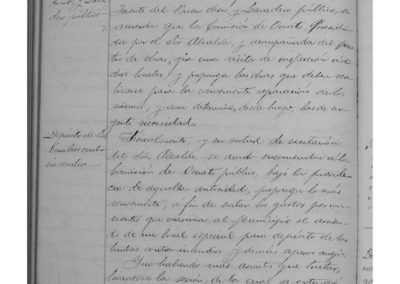 dero público
fuente del Buen áras y Lavadero público, se
acuerda que la Comisión de Ornato presidi-
da por el Sr. Alcalde, y acompañada del peri-
to de obras, gire una visita de inspección a di-
chos locales, y proponga las obras que deban rea-
lizarse para la conveniente reparación de los
mismos, y que determine, desde luego las de ur-
gente necesidad.
Depósito de las
bombas contra
incendios.
Finalmente, y en virtud de excitación
del Sr. Alcalde, se acordó encomendar a la
Comisión de Ornato público, bajo la presiden-
cia de aquella autoridad, proponga lo más
conveniente, a fin de evitar los gastos perma-
nentes que ocasiona al municipio el arrien-
do de un local especial para depósito de las
bombas contra incendios y demás
Y no habiendo más asuntos que tratar,
levantose la sesión, de la cual se extendió